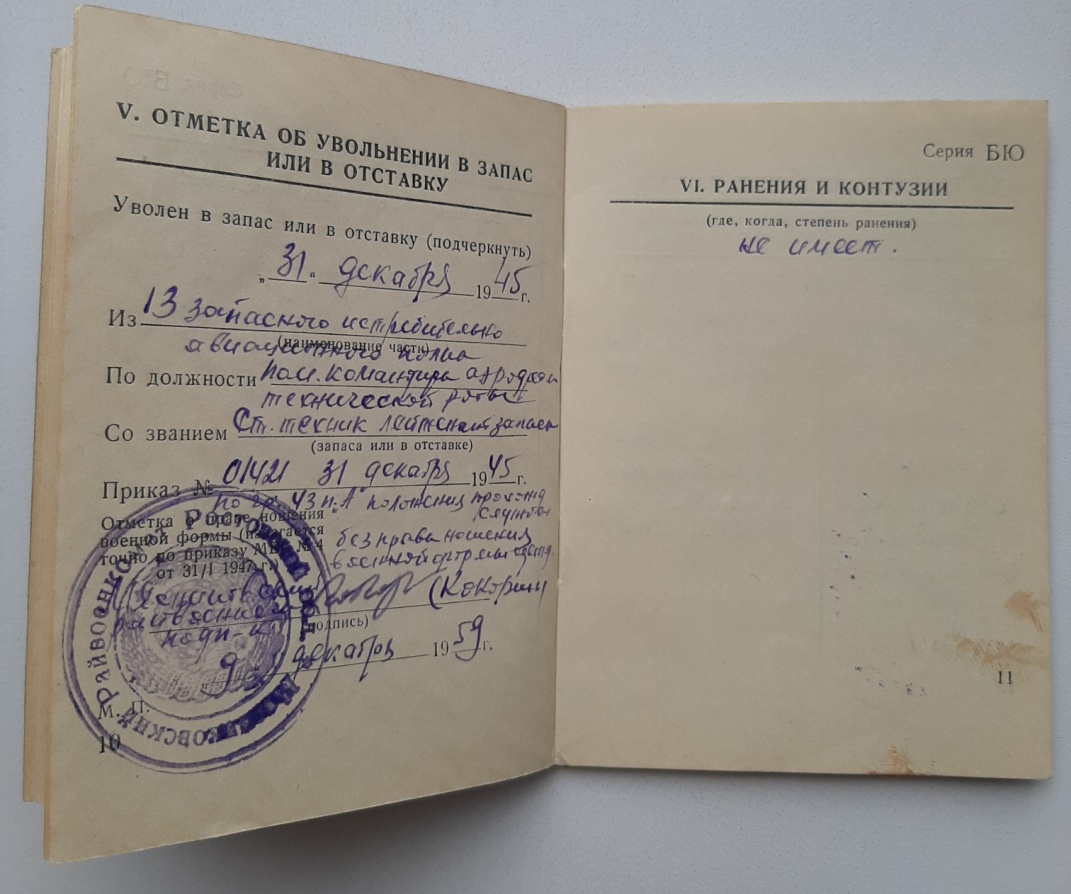 V. ОТМЕТКА ОБ УВОЛЬНЕНИИ В ЗАПАС
ИЛИ В ОТСТАВКУ
Уволен в запас или в отставку (подчеркнуть)
„31“ декабря 1945 г.
Из 13 запасного истребительно
(наименование части)
авиационного полка
По должности пом. командира аэродром
технической роты
Со званием Ст. техник лейтенант запаса
(запаса или в отставке)
Приказ № 01421 31 декабря 1945 г.
по ст. 43 п. „А“ положения прохожд
службы
Отметка о праве ношения
военной формы (излагается
точно по приказу МВС № 4
от 31/I 1947 г.)
без права ношения
военной формы одежд.
райвоенком
подп-к (Кокорин)
(подпись)
„9“ декабря 1959 г.
М. П.
10
Райвоенкомат Ростовской обл.
Серия БЮ
VI. РАНЕНИЯ И КОНТУЗИИ
(где, когда, степень ранения)
не имеет.
11